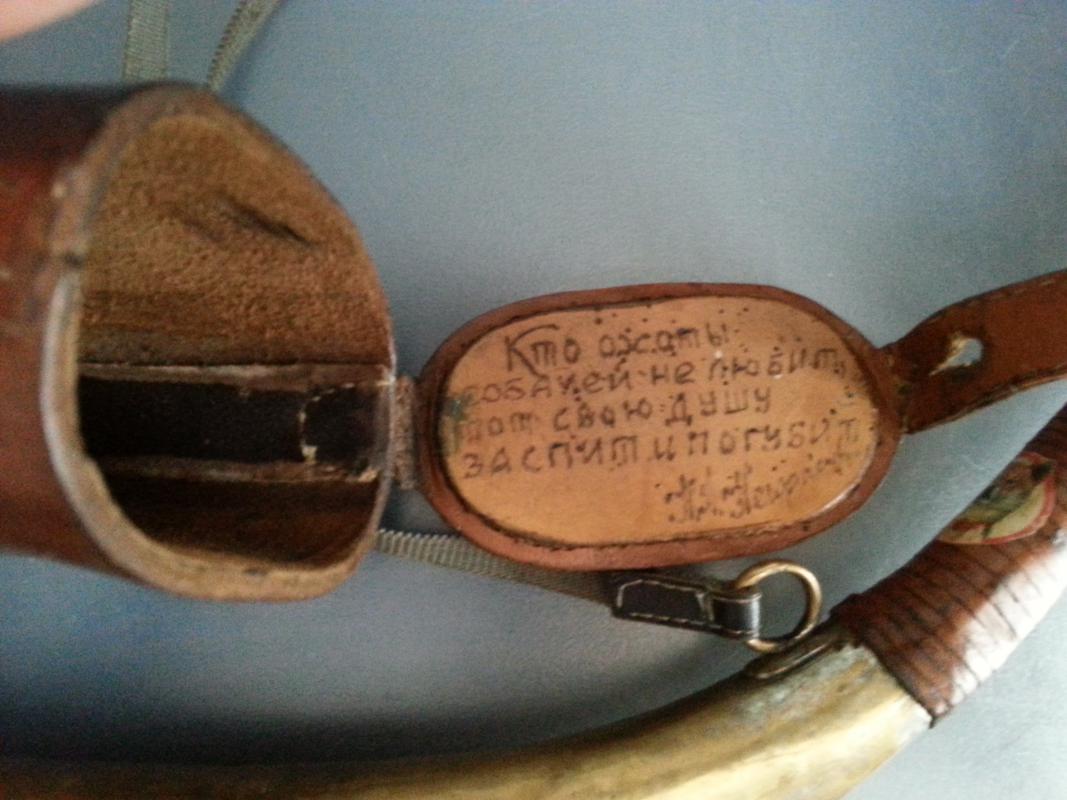 Кто охоты
собачей не любит
тот свою душу
заспит и погубит